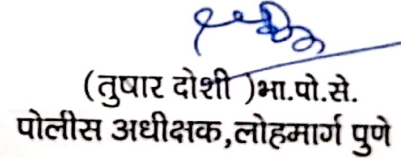 (तुषार दोशी )भा.पो.से.
पोलीस अधीक्षक,लोहमार्ग पुणे